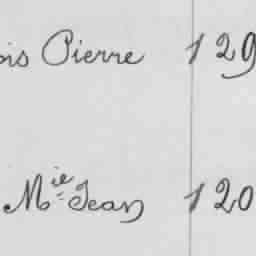 ois Pierre 129
Mie Jean 120